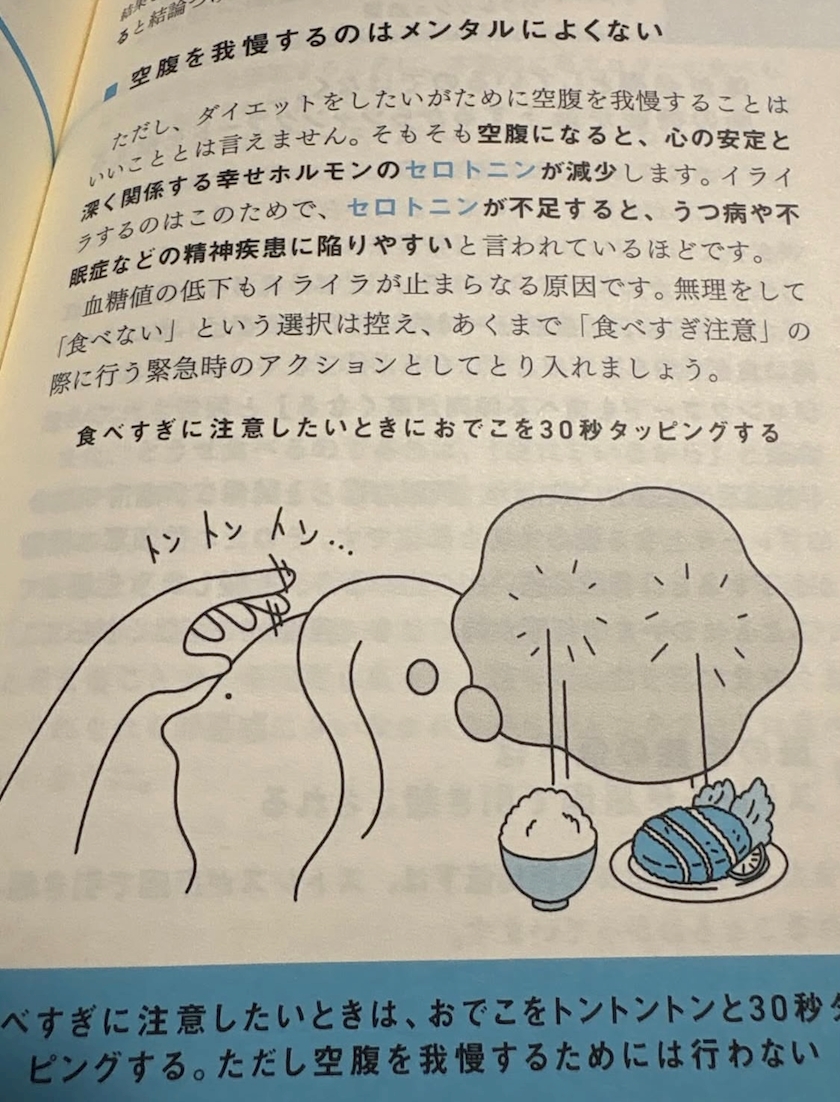 ると結論
空腹を我慢するのはメンタルによくない
ただし、ダイエットをしたいがために空腹を我慢することは
いいこととは言えません。そもそも空腹になると、心の安定と
深く関係する幸せホルモンのセロトニンが減少します。イライ
ラするのはこのためで、セロトニンが不足すると、うつ病や不
眠症などの精神疾患に陥りやすいと言われているほどです。
血糖値の低下もイライラが止まらなる原因です。無理をして
「食べない」という選択は控え、あくまで「食べすぎ注意」の
際に行う緊急時のアクションとしてとり入れましょう。
食べすぎに注意したいときにおでこを30秒タッピングする
トントントン…
べすぎに注意したいときは、おでこをトントントンと30秒タ
ピングする。ただし空腹を我慢するためには行わない